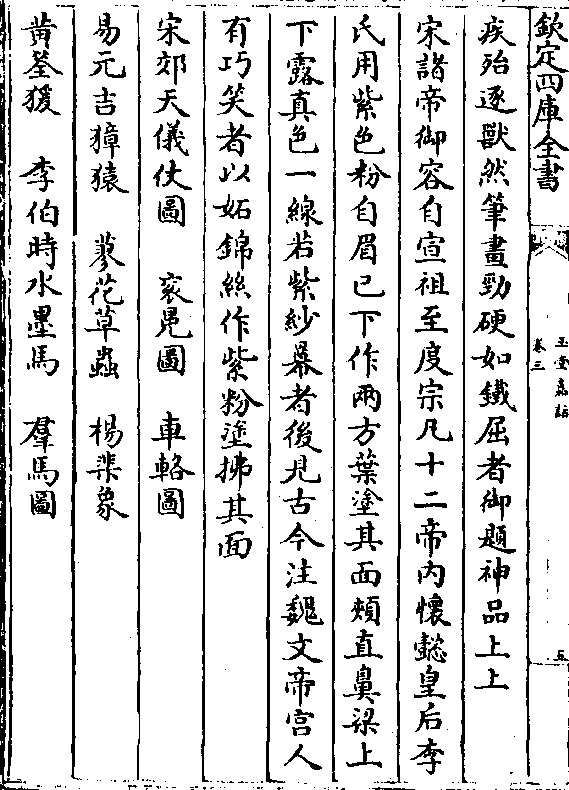 欽定四庫全書
玉堂嘉話
卷三
五
疾殆逐獸然筆畫勁硬如鐵屈者御題神品上上
宋諸帝御容自宣祖至度宗凡十二帝内懷懿皇后李
氏用紫色粉自眉已下作兩方葉塗其面頰直鼻梁上
下露真色一線若紫紗羃者後見古今注魏文帝宫人
有巧笑者以妬錦絲作紫粉塗拂其面
宋郊天儀仗圖　衮冕圖　車輅圖
易元吉獐猿　蓼花草蟲　楊棐象
黄筌猨　李伯時水墨馬　羣馬圖